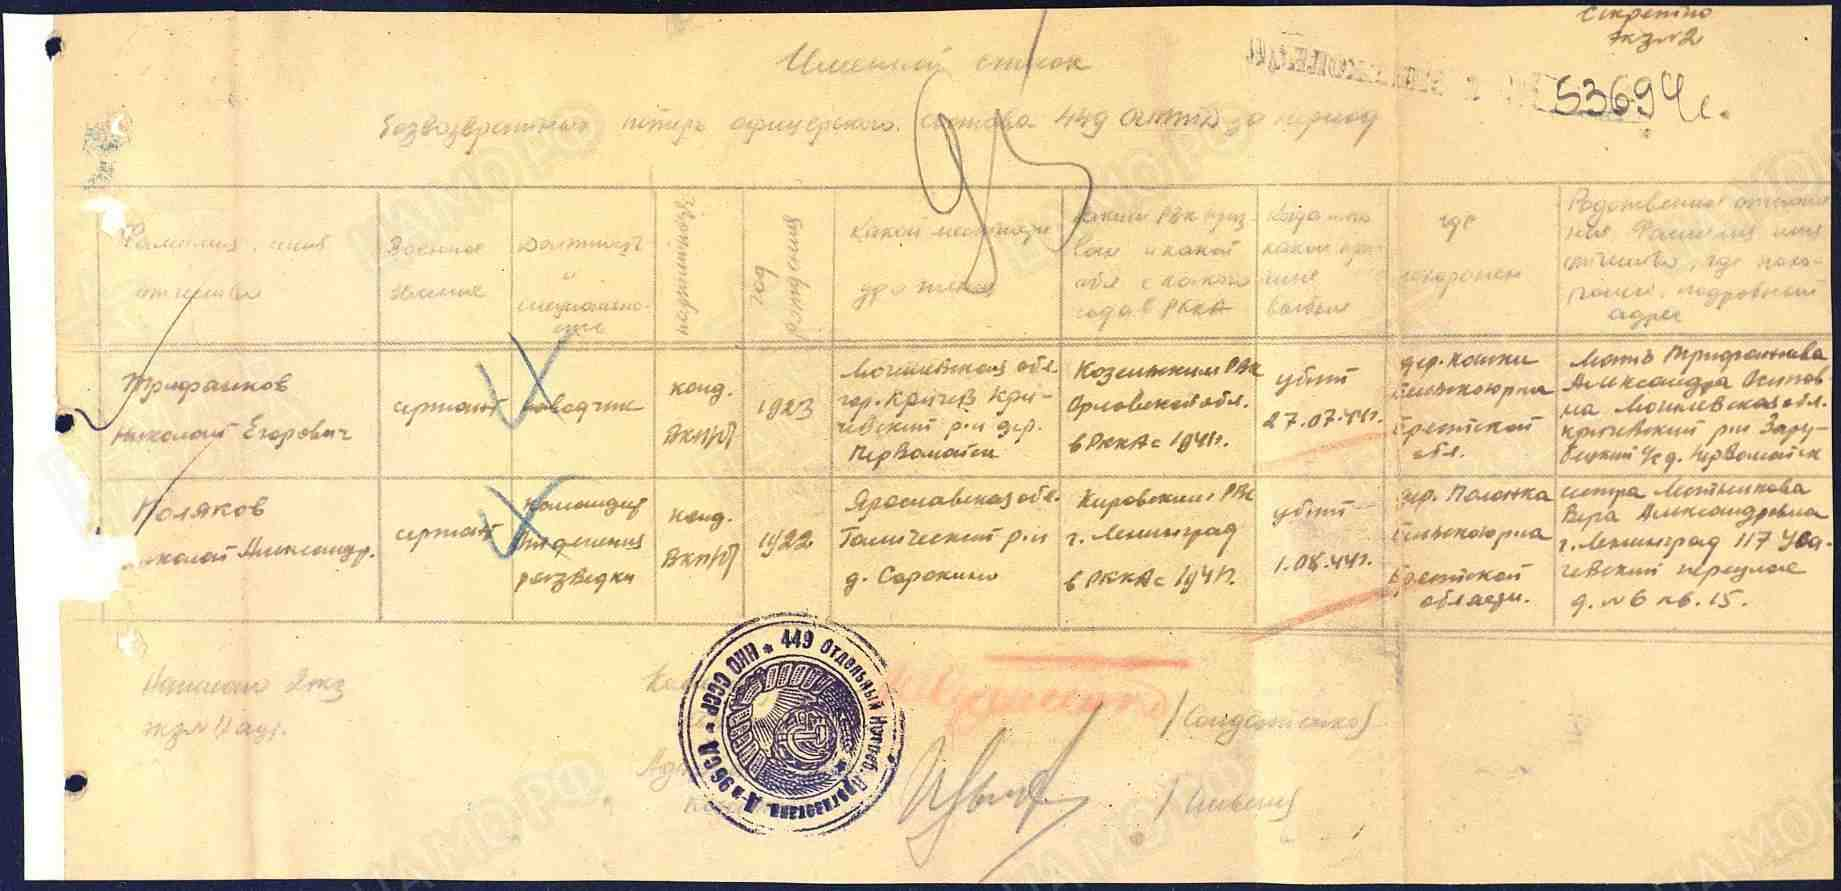 Секретно
экз № 2
53694с.
Именной список
безвозвратных потерь офицерского состава 449 за период
Фамилия, имя
отчество
Военное
звание
Должность
и
специально-
сть
партийность
год
рождения
Какой местности
уроженец
Каким РВК приз-
ван и какой
обл с какого
года в РККА
Когда и по
какой при-
чине
выбыл
где
похоронен
Родственные отноше-
ния, Фамилия имя
отчество, где прож-
подробный
адрес
Трифанков
Николай Егорович
сержант
канд.
ВКП/б/
1923
Могилевская обл.
гор. Кричев Кри-
чевский р-н дер.
Первомайск
Козельским РВК
Орловской обл.
в РККА с 1941г.
убит
27.07.44г.
дер. Кошки
Брестской
обл.
Мать Трифанкова
Александра Осипов
на Могилевская обл.
Кричевский р-н Зару-
Первомайск
Поляков
Николай Александр.
сержант
Командир
отделения
разведки
канд.
ВКП/б/
1922
Ярославская обл.
р-н
д. Сорокино
Кировским РВК
г. Ленинград
в РККА с 1941г.
убит
1.08.44г.
дер. Полонка
Брестской
области.
сестра
Вера Александровна
г. Ленинград 117 Уса-
чевский переулок
д. № 6 кв. 15.
Написано 2 экз
экз № 1 адр.
449 Отдельный Истреб. Противотанк. Д * НКО СССР *